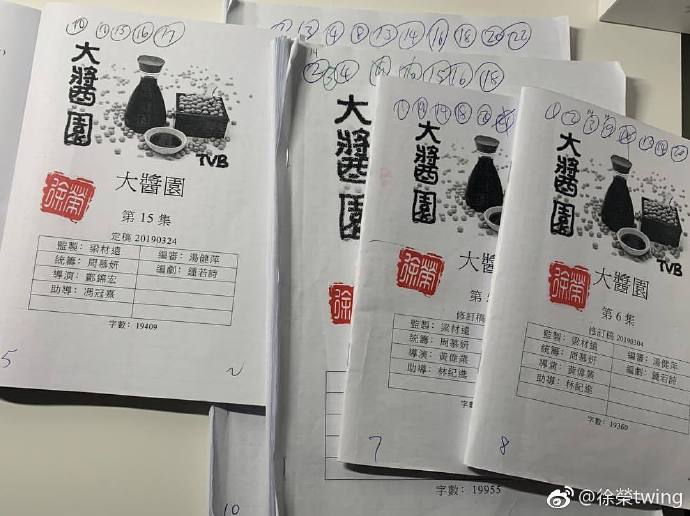 ⑩ ⑪ ⑮ ⑯ ⑰
大醬園
TVB
徐榮
大醬園
第 15 集
定稿 20190324
監製: 梁材遠 編審: 湯健萍
統籌: 周慕妍 編劇: 鍾若詩
導演: 鄭錦宏
助導: 馮冠燕
字數: 19409
5
④ ⑧ ⑬ ⑭ ⑯ ⑱ ⑳ ㉒
② ③ ④ ⑮ ⑯ ⑱
大醬園
徐
字數: 19955
10
⑰ ⑱
大醬園
徐榮
大
第
修訂稿
監製: 梁材遠
統籌: 周慕妍
導演: 黃偉業
助導: 林紀進
字數:
7
① ② ③
大醬園
TVB
徐榮
大醬園
第 6 集
修訂稿 20190304
監製: 梁材遠 編審: 湯健萍
統籌: 周慕妍 編劇: 鍾若詩
導演: 黃偉業
助導: 林紀進
字數: 19360
8
@徐榮twing